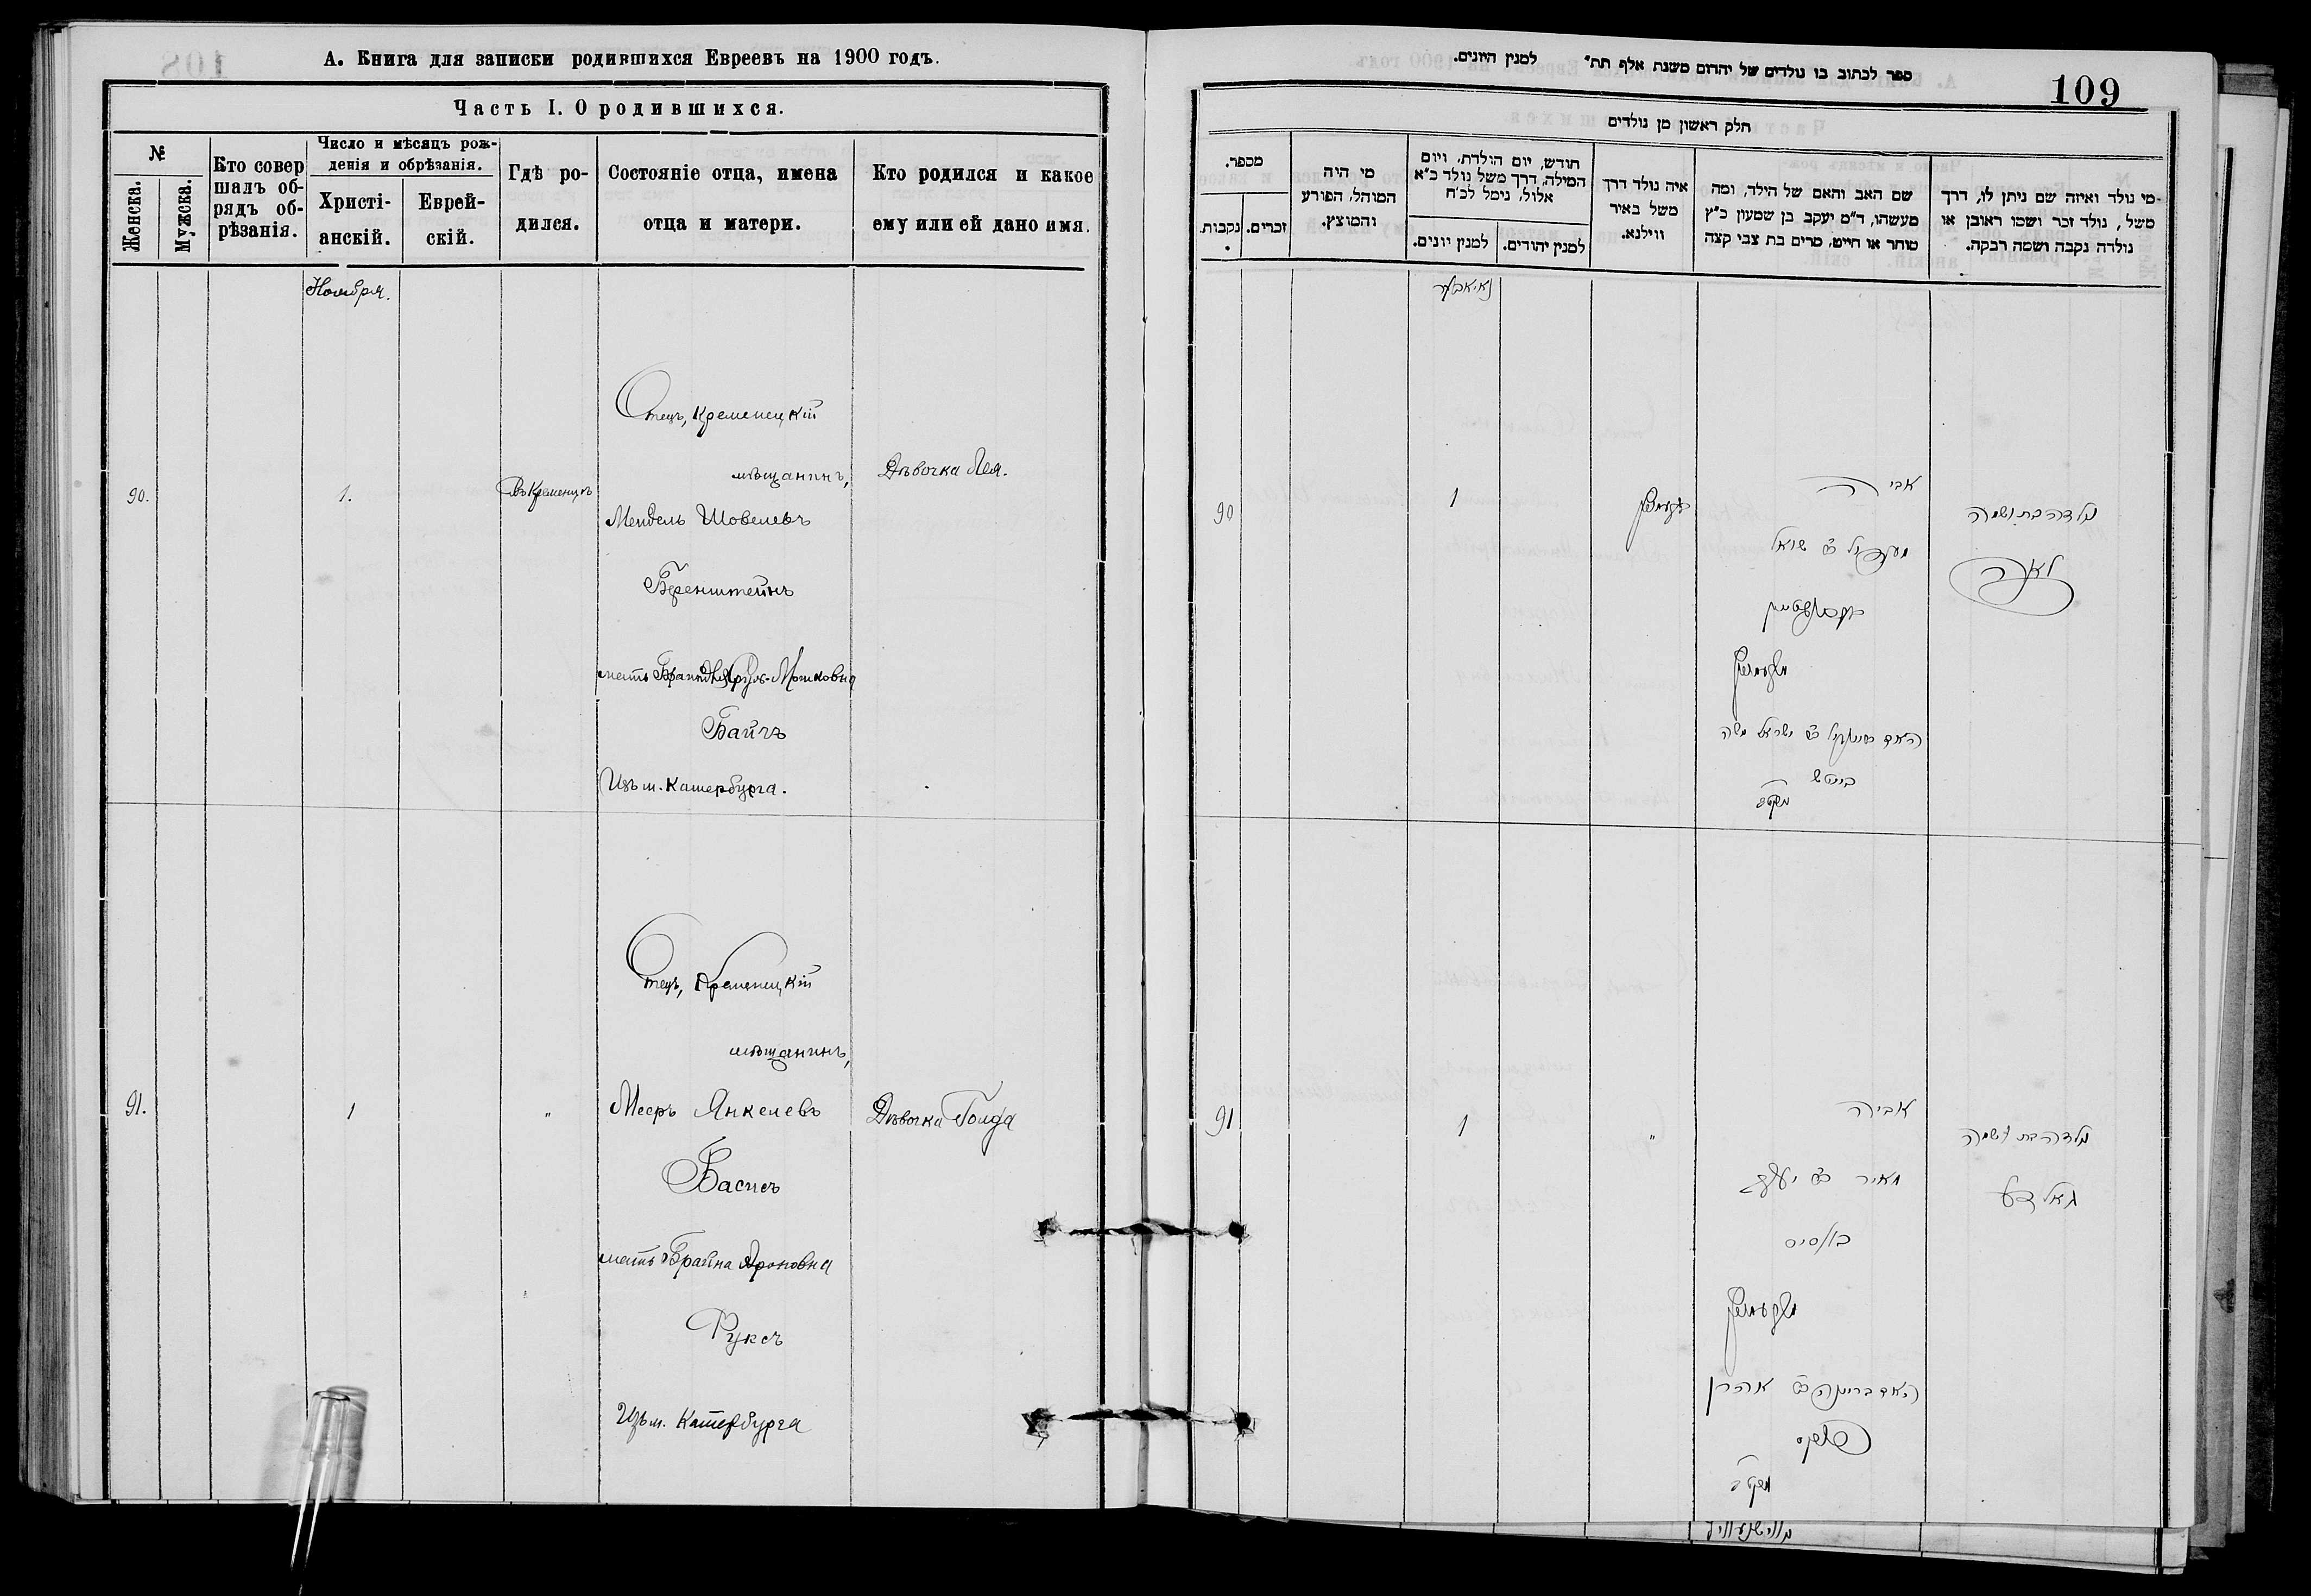 А. Книга для записки родившихся Евреевъ на 1900 годъ.
Часть I. О родившихся.
№
Женска.
Мужска.
Кто совер
шалъ об-
рядъ об-
рѣзанія.
Число и мѣсяцъ рож-
денія и обрѣзанія.
Христі-
анскій.
Еврей-
скій.
Гдѣ ро-
дился.
Состояніе отца, имена
отца и матери.
Кто родился и какое
ему или ей дано имя.
Ноября.
90.
1.
Въ Кременцѣ
Отецъ, Кременецкій
мѣщанинъ,
Мендель Шовелевъ
Беренштейнъ
мать Мошковна
Байчъ
Изъ м. Катербурга.
Дѣвочка Лея.
91.
1
"
Отецъ, Кременецкій
мѣщанинъ,
Мееръ Янкелевъ
Басисъ
мать Брайна Ароновна
Фуксъ
Изъ м. Катербурга
Дѣвочка Голда
ספר לכתוב בו נולדים של יהדום משנת אלף תת״ למנין היונים.
109
חלק ראשון מן נולדים
מספר.
נקבות.
זכרים.
מי היה
המוהל, הפורע
והמוצץ.
חודש, יום הולדת, ויום
המילה, דרך משל נולד כ״א
אלול, נימל לכ״ח
למנין יונים.
למנין יהודים.
איה נולד דרך
משל באיר
ווילנא.
שם האב והאם של הילד, ומה
מעשהו, ד״מ יעקב בן שמעון כ״ץ
סוחר או חייט, מרים בת צבי קצה
מי נולד ואיזה שם ניתן לו, דרך
משל, נולד זכר ושמו ראובן או
נולדה נקבה ושמה רבקה.
נאיאבער
90
1
קרעמעניץ
אבי ה
מענדיל ב״ר שואל
בערנשטיין
מקרעמניץ
האם ב״ר ישראל משה
בייטש
נולדה בת ושמה
לאה
91
1
"
אביה
מאיר ב״ר יעקב
באסיס
מקרעמניץ
האם בריינה ב״ר אהרן
פוקס
נולדה בת ושמה
גאלדע